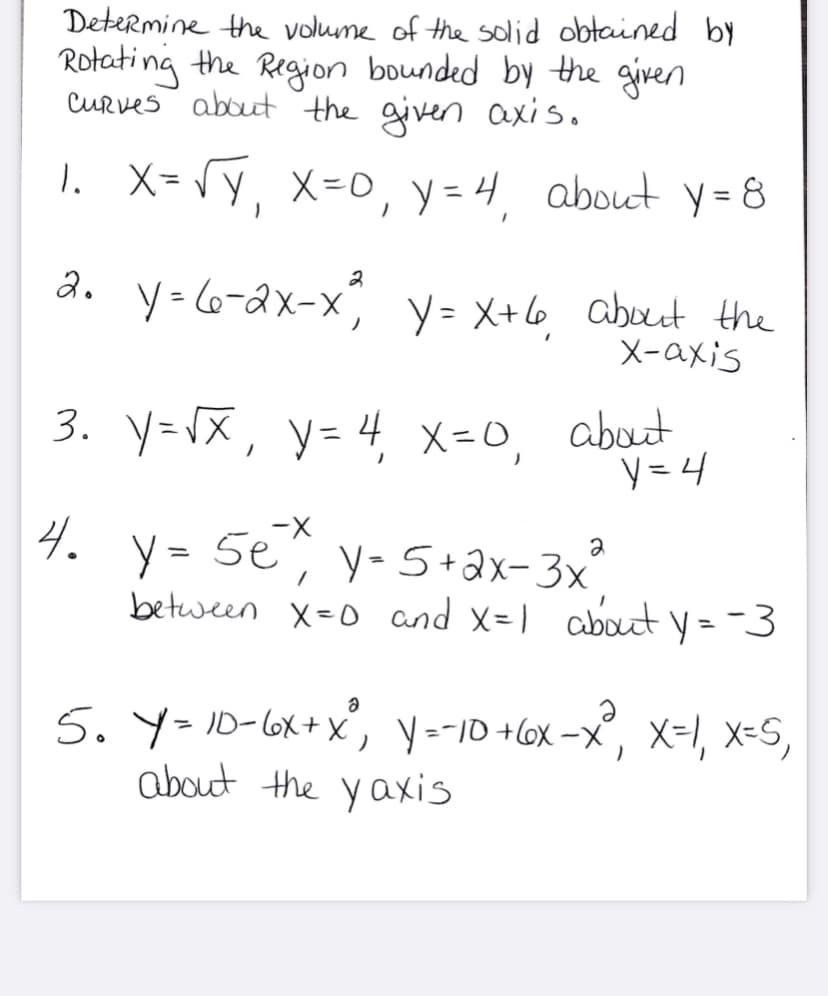 Determine the volume of the solid obtained by
Rotating the Region bounded by the given
curves about the given axis.
1. x=√y, x=0, y=4, about y=8
2. y=6-2x-x², y=x+6, about the
x-axis
3. y=√x, y=4, x=0, about
y=4
4. y=5e⁻ˣ, y=5+2x-3x²
between x=0 and x=1 about y=-3
5. y=10-6x+x², y=-10+6x-x², x=1, x=5,
about the y axis